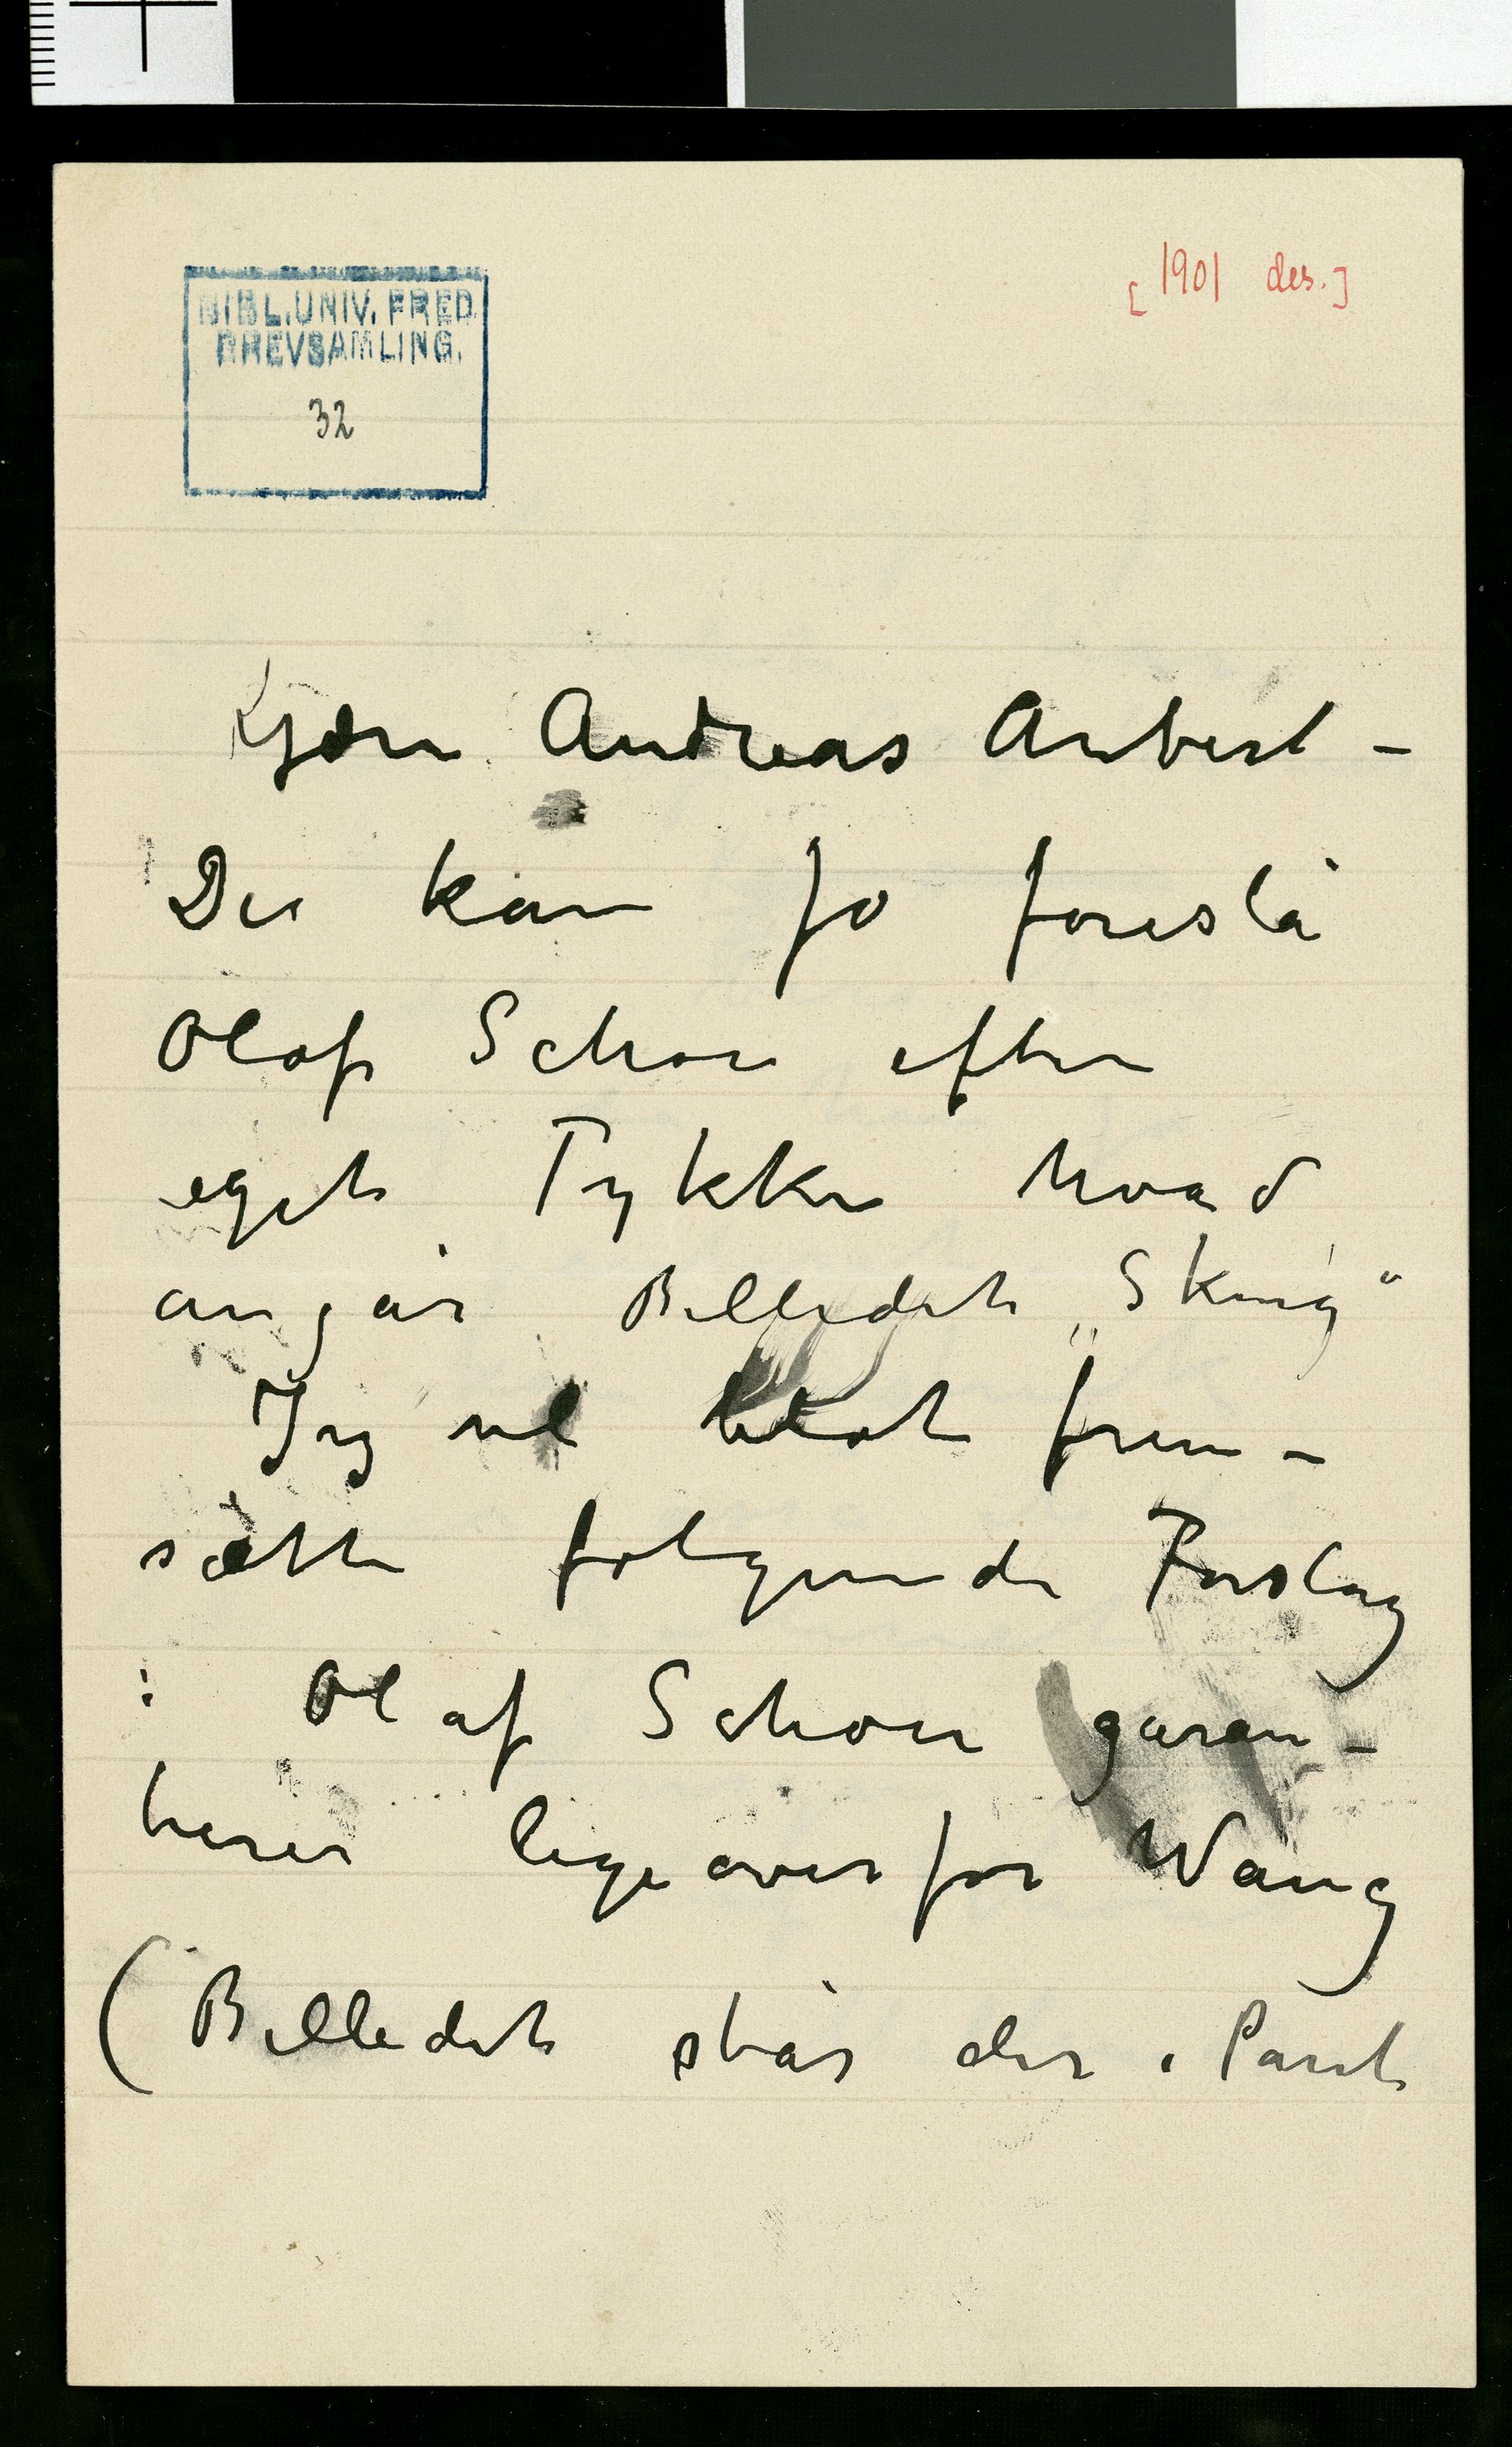 [1901 des.]
BIBL.UNIV. FRED.
BREVSAMLING.
32
Kjære Andreas Aubert –
De kan jo foreslå
Olaf Schou efter
eget Tykke hvad
angår Billedet „Skrig"
Jeg vil blot frem–
sætte følgende Forslag
: Olaf Schou garan–
terer ligeoverfor Wang
(Billedet står der i Pant